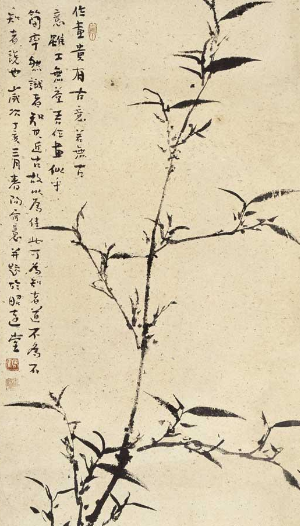 作畫貴有古意若無古
意雖工無益吾作畫似乎
簡率然識者知其近古故以為佳此可為知者道不為不
知者說也歲次丁亥三月春陶并題於昭遠堂